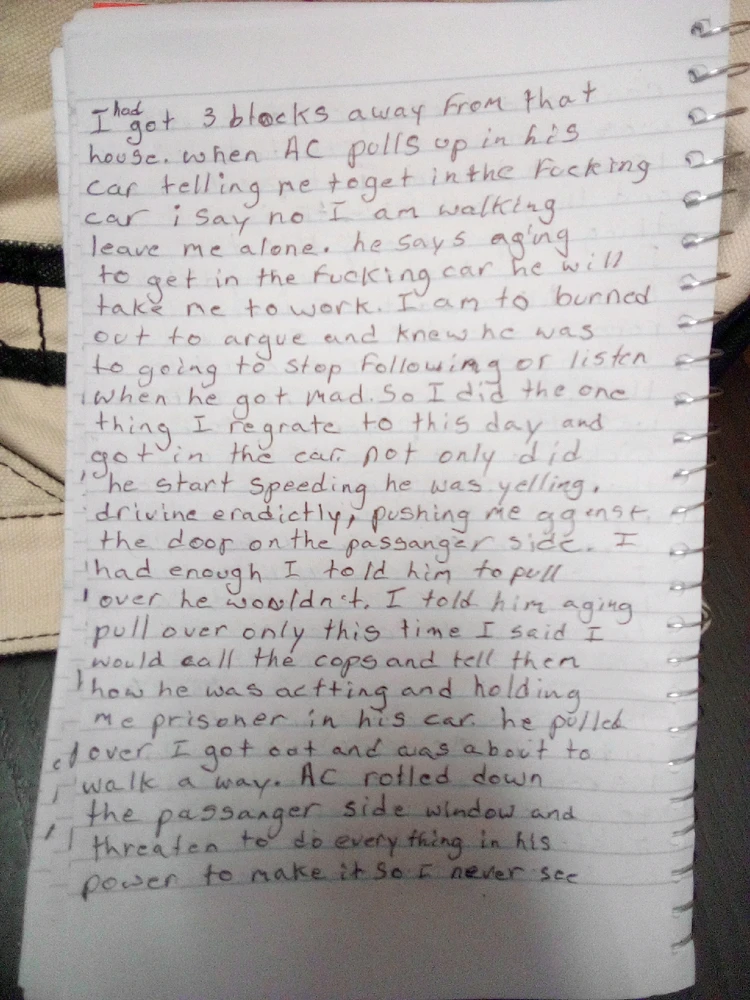 I had got 3 blocks away from that
house. when AC pulls up in his
car telling me to get in the fucking
car i say no I am walking
leave me alone. he says aging
to get in the fucking car he will
take me to work. I am to burned
out to argue and knew he was
to going to stop following or listen
when he got mad. So I did the one
thing I regrate to this day and
got in the car. not only did
he start speeding he was yelling,
drivine eradictly, pushing me aganst
the door on the passanger side. I
had enough I told him to pull
over he wouldn't. I told him aging
pull over only this time I said I
would call the cops and tell them
how he was actting and holding
me prisoner in his car. he pulled
over I got out and was about to
walk a way. AC rolled down
the passanger side window and
threaten to do every thing in his
power to make it so I never see